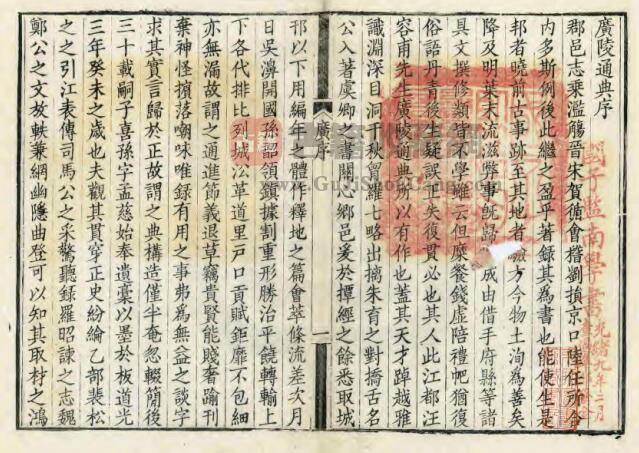 廣陵通典序
郡邑志乘濫觴晉宋賀循會稽劉損京口陸任所合
內多斯例後此繼之盈乎著錄其為書也能使生是
邦者曉前古事跡至其地者驗方今物土洵為善矣
降及明葉末流滋弊事既歸成由借手府縣等諸
具文撰修類皆不學雖云但縻餐錢虛陪禮帊猶復
俗語丹青後生疑誤其失復貫必也其人此江都汪
容甫先生廣陵通典所以有作也蓋其天才踔越雅
識淵深目洞千秋胷羅七略出摛朱育之對搞舌名
公入著虞卿之書關心鄉邑爰於擇經之餘悉取城
廣序
一
邗以下用編年之體作釋地之篇會萃條流差次月
日吳濞開國孫韶領鎮據割重形勝治平饒轉輸上
下各代排比列城沿革道里戶口貢賦鉅靡不包細
亦無漏故謂之通進節義退草竊貴賢能賤奢踰刊
棄神怪擯落嘲咏唯錄有用之事弗為無益之談字
求其實言歸於正故謂之典構造僅半奄忽輟簡後
三十載嗣子喜孫字孟慈始奉遺稾以墨於板道光
三年癸未之歲也夫觀其貫穿正史紛綸乙部裴松
之之引江表傳司馬公之采驚聽錄羅昭諫之志魏
鄭公之文放軼兼網幽隱曲登可以知其取材之鴻
國子監南學書
光緒九年二月